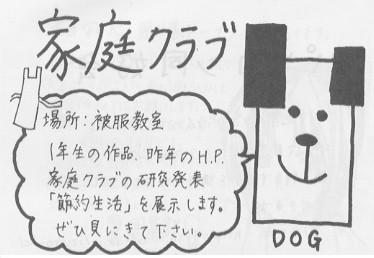 家庭クラブ
場所:被服教室
1年生の作品、昨年のH.P.
家庭クラブの研究発表
「節約生活」を展示します。
ぜひ見にきて下さい。
DOG